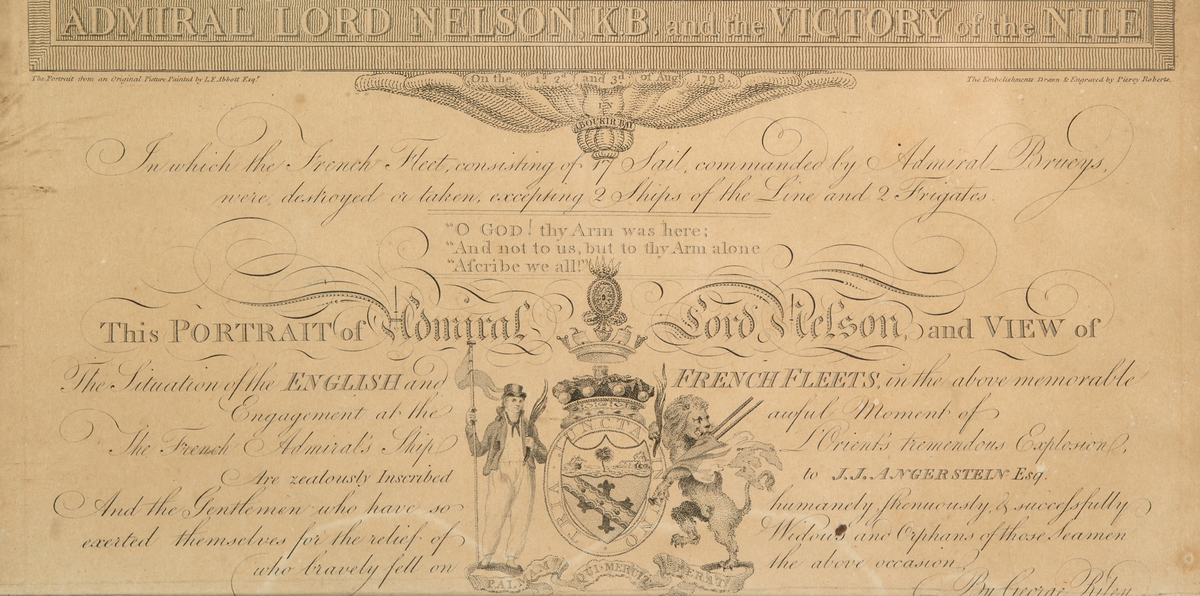 ADMIRAL LORD NELSON, K.B. and the VICTORY of the NILE
The Portrait from an Original Picture Painted by L.F. Abbott Esqr.
On the 1st 2d and 3d of Augt 1798
The Embelishments Drawn & Engraved by Piercy Roberts.
IN
ABOUKIR BAY
In which the French Fleet, consisting of 17 Sail, commanded by Admiral Brueys,
were, destroyed or taken, excepting 2 Ships of the Line and 2 Frigates.
"O GOD! thy Arm was here;
"And not to us, but to thy Arm alone
"Ascribe we all!"
This PORTRAIT of Admiral Lord Nelson, and VIEW of
The Situation of the ENGLISH and FRENCH FLEETS, in the above memorable
Engagement at the awful Moment of
The French Admiral's Ship L'Orient's tremendous Explosion,
Are zealously Inscribed to J.J. ANGERSTEIN Esq.
And the Gentlemen who have so humanely, strenuously, & successfully
exerted themselves for the relief of Widows and Orphans of those Seamen
who bravely fell on the above occasion.
TRIA JUNCTA IN UNO
PALMAM QUI MERUIT FERAT
By George Riley